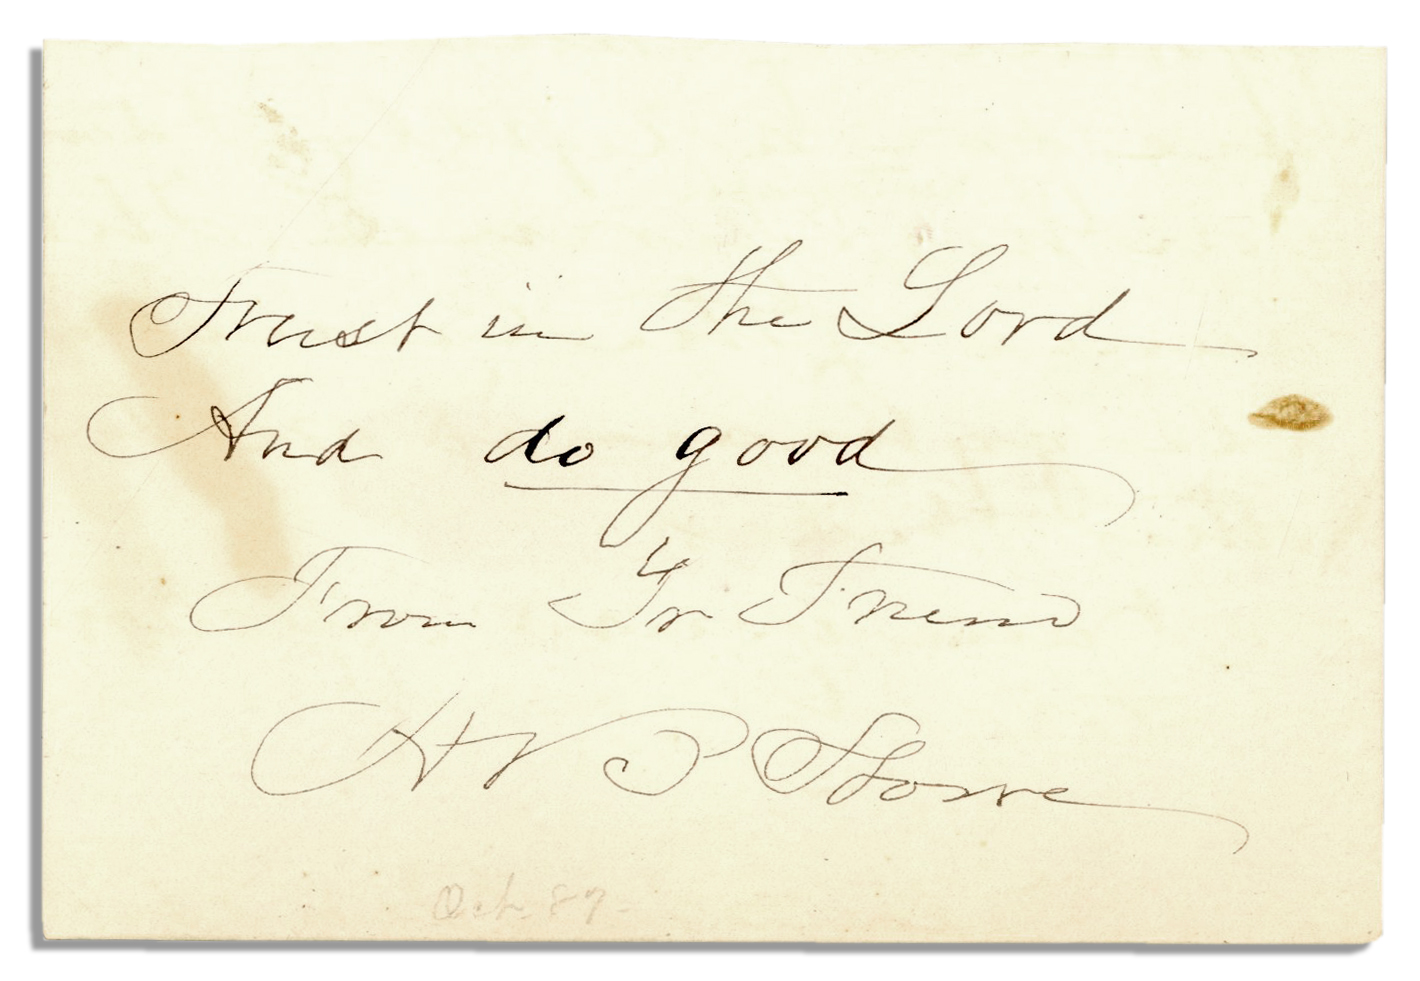 Trust in the Lord
And do good
From Yr Friend
H B Stowe
Oct. 87.